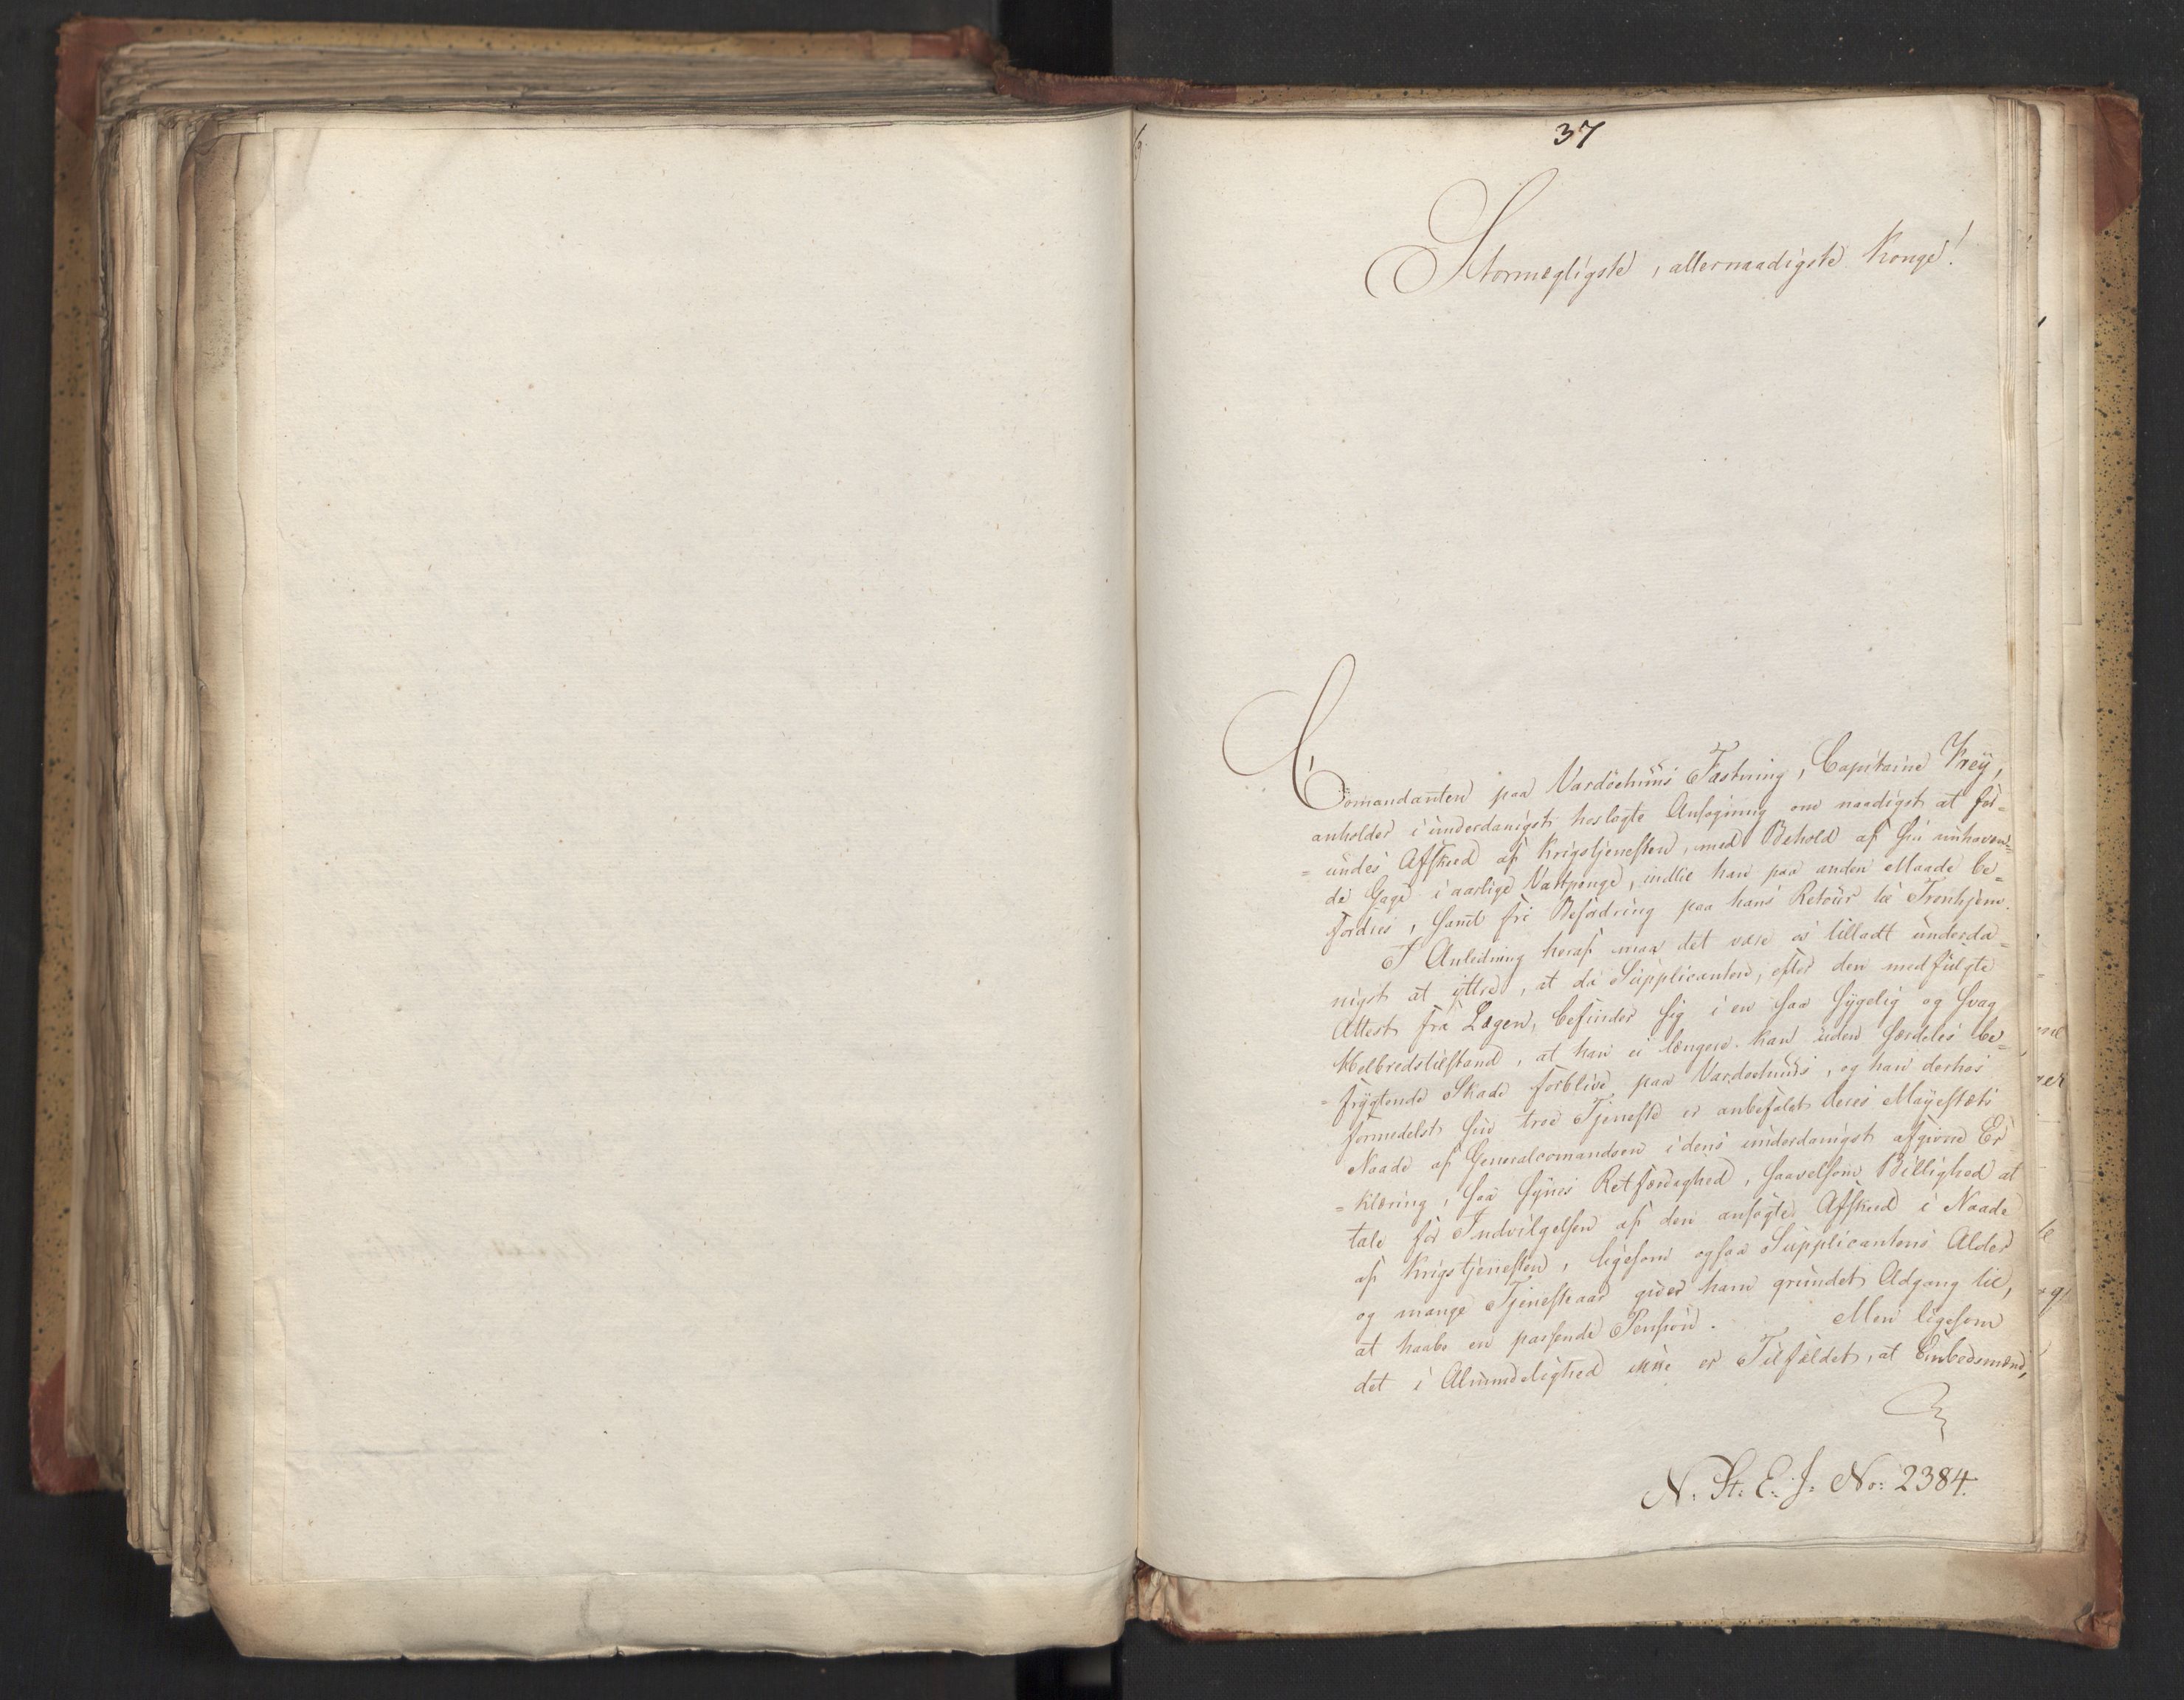 37
Stormegtigste, allernaadigste Konge!
Commandanten paa Vardöehuus Fæstning, Capitaine Krey,
anholder i underdanigst hoslagte Ansøgning om naadigst at for-
= undes Afskeed af Krigstjenesten, med Behold af sin nuhaven-
de Gage i aarlige Vartpenge, indtil han paa anden Maade be-
fordres, samt fri Befordring paa hans Retour til Tronhjem.
I Anledning heraf maa det være os tilladt underda-
nigst at yttre, at da Supplicanten, efter den medfulgte
Attest fra Lægen, befinder sig i en saa sygelig og svag
Helbredstilstand, at han ei længere kan uden særdeles be-
= frygtende Skade forblive paa Vardoehuus, og han derhos
formedelst sin troe Tjeneste er anbefalet Deres Majestæts
Naade af Generalcommandoen i dens underdanigst afgivne Er
= klæring, saa synes Retfærdighed, saavelsom Billighed at
tale for Indvilgelsen af den ansøgte Afskeed i Naade
af Krigstjenesten, ligesom ogsaa Supplicantens Alder
og mange Tjenesteaar giver ham grundet Adgang til,
at haabe en passende Pension. Men ligesom
det i Almindelighed ikke er Tilfældet, at Embedsmænd,
N. St. E. J. No: 2384.